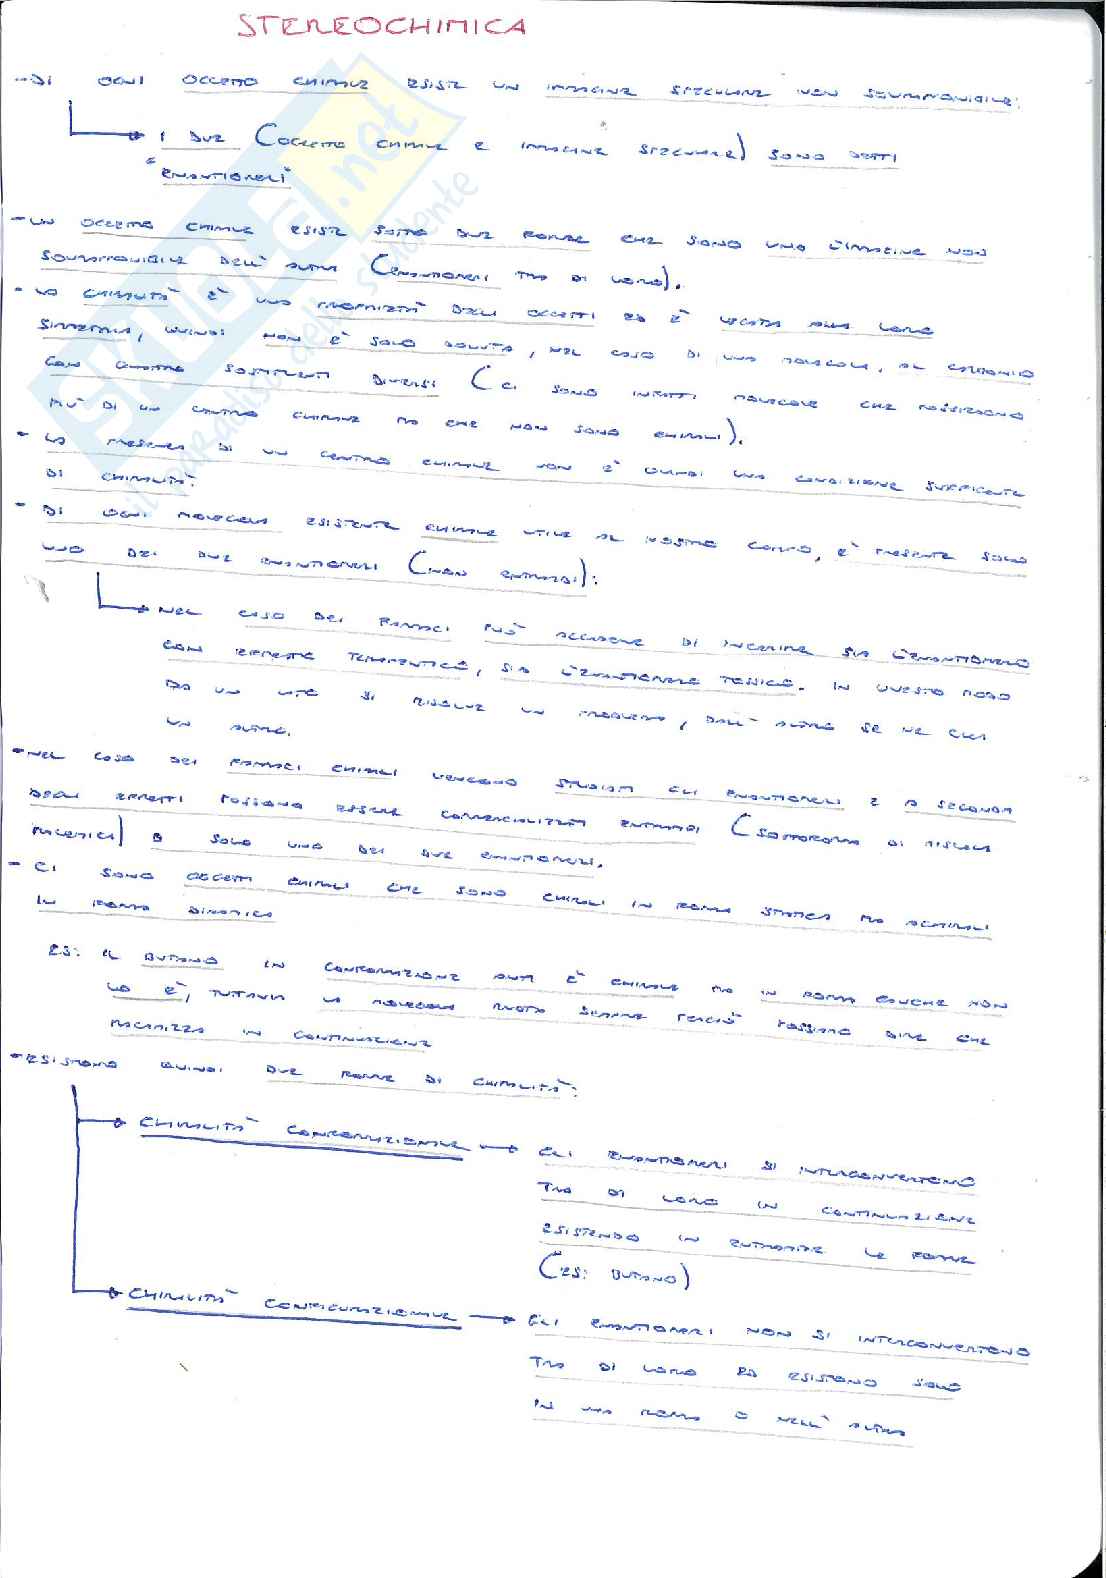 STEREOCHIMICA
- DI OGNI OGGETTO CHIRALE ESISTE UN IMMAGINE SPECULARE NON SOVRAPPONIBILE:
I DUE (OGGETTO CHIRALE E IMMAGINE SPECULARE) SONO DETTI
"ENANTIOMERI"
- UN OGGETTO CHIRALE ESISTE SOTTO DUE FORME CHE SONO UNO L'IMMAGINE NON
SOVRAPPONIBILE DELL'ALTRA (ENANTIOMERI TRA DI LORO).
- LA CHIRALITÀ È UNA PROPRIETÀ DEGLI OGGETTI ED È LEGATA ALLA LORO
SIMMETRIA, QUINDI NON È SOLO DOVUTA, NEL CASO DI UNA MOLECOLA, AL CARBONIO
CON QUATTRO SOSTITUENTI DIVERSI (CI SONO INFATTI MOLECOLE CHE POSSIEDONO
PIÙ DI UN CENTRO CHIRALE MA CHE NON SONO CHIRALI).
- LA PRESENZA DI UN CENTRO CHIRALE NON È QUINDI UNA CONDIZIONE SUFFICIENTE
DI CHIRALITÀ.
- DI OGNI MOLECOLA ESISTENTE CHIRALE UTILE AL NOSTRO CORPO, È PRESENTE SOLO
UNO DEI DUE ENANTIOMERI (NON ENTRAMBI):
NEL CASO DEI FARMACI PUÒ ACCADERE DI INGERIRE SIA L'ENANTIOMERO
CON EFFETTO TERAPEUTICO, SIA L'ENANTIOMERO TOSSICO. IN QUESTO MODO
DA UN LATO SI RISOLVE UN PROBLEMA, DALL'ALTRO SE NE CREA
UN ALTRO.
- NEL CASO DEI FARMACI CHIRALI VENGONO STUDIATI GLI ENANTIOMERI E A SECONDA
DEGLI EFFETTI POSSONO ESSERE COMMERCIALIZZATI ENTRAMBI (SOTTOFORMA DI MISCELA
RACEMICA) O SOLO UNO DEI DUE ENANTIOMERI.
- CI SONO OGGETTI CHIRALI CHE SONO CHIRALI IN FORMA STATICA MA ACHIRALI
IN FORMA DINAMICA
ES: IL BUTANO IN CONFORMAZIONE ANTI È CHIRALE MA IN FORMA GAUCHE NON
LO È, TUTTAVIA LA MOLECOLA RUOTA SEMPRE PERCIÒ POSSIAMO DIRE CHE
RACEMIZZA IN CONTINUAZIONE
- ESISTONO QUINDI DUE FORME DI CHIRALITÀ:
CHIRALITÀ CONFORMAZIONALE → GLI ENANTIOMERI SI INTERCONVERTONO
TRA DI LORO IN CONTINUAZIONE
ESISTENDO IN ENTRAMBE LE FORME
(ES: BUTANO)
CHIRALITÀ CONFIGURAZIONALE → GLI ENANTIOMERI NON SI INTERCONVERTONO
TRA DI LORO ED ESISTONO SOLO
IN UNA FORMA O NELL'ALTRA
SKUOLA.net
il paradiso dello studente